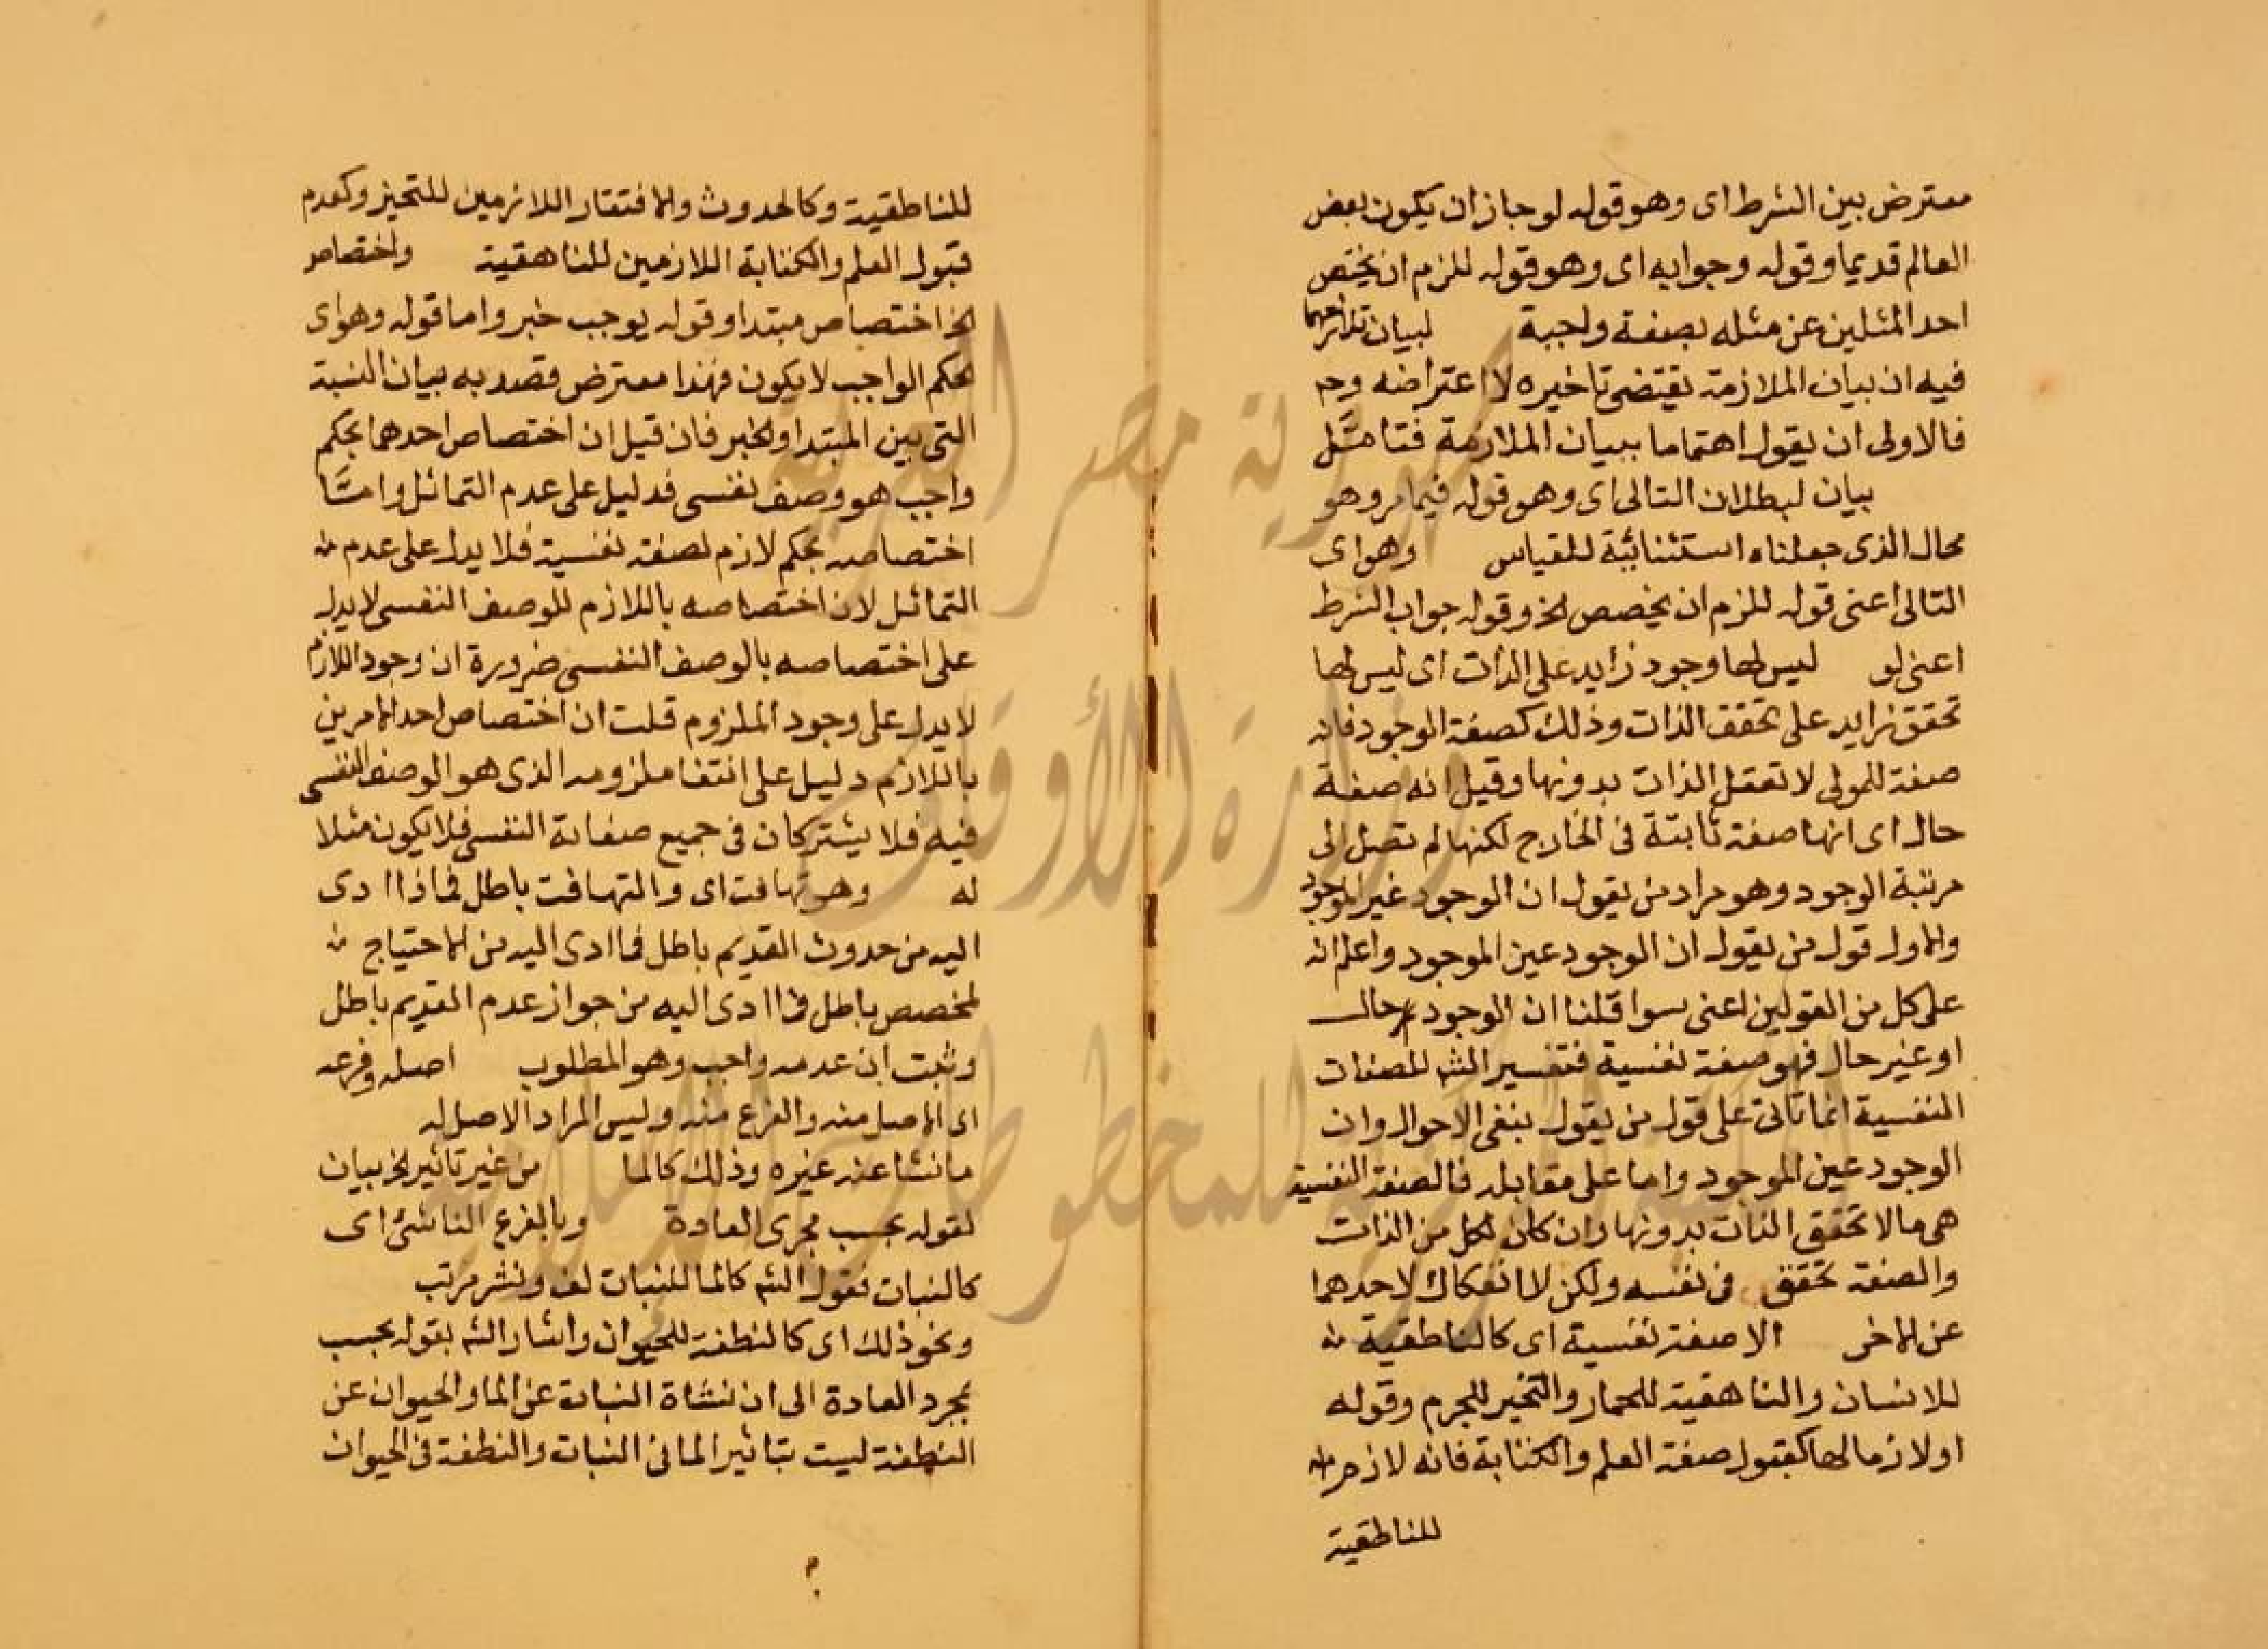 معترض بين الشرط اى وهو قوله لو جاز ان يكون بعض
العالم قديما وقوله وجوابه اى وهو قوله للزم ان يختص
احد المثلين عن مثله بصفة واجبة لبيان
فيه ان بيان الملازمة يقتضى تاخيره لا اعتراضه وح
فالاولى ان يقول اهتماما ببيان الملازمة فتامّل
بيان لبطلان التالى اى وهو قوله فيما مر وهو
محال الذى جعلناه استثنائية للقياس وهو اى
التالى اعنى قوله للزم ان يخصص الخ وقوله جواب الشرط
اعنى لو ليس لها وجود زايد على الذات اى ليس لها
تحقق زايد على تحقق الذات وذلك كصفة الوجود فانه
صفة للمولى لا تعقل الذات بدونها وقيل انه صفة
حال اى انها صفة ثابتة فى الخارج لكنها لم تصل الى
مرتبة الوجود وهو مراد من يقول ان الوجود غير الموجود
والاول قول من يقول ان الوجود عين الموجود واعلم انه
على كل من القولين اعنى سوا قلنا ان الوجود حال
او غير حال فهو صفة نفسية فتفسير الشه للصفات
النفسية انما تاتى على قول من يقول بنفى الاحوال وان
الوجود عين الموجود واما على مقابله فالصفة النفسية
هى ما لا تحقق الذات بدونها وان كان لكل من الذات
والصفة تحقق فى نفسه ولكن لا انفكاك لاحدهما
عن الاخر الا صفة نفسية اى كالناطقية
للانسان والناهقية للحمار والتحيز للجرم وقوله
او لازما لها كقبول صفة العلم والكتابة فانه لازم
للناطقية
للناطقية وكالحدوث والافتقار اللازمين للتحيز وكعدم
قبول العلم والكتابة اللازمين للناهقية واختصاص
الخ اختصاص مبتدا وقوله يوجب خبر واما قوله وهو اى
الحكم الواجب لا يكون فهذا معترض قصد به بيان النسبة
التى بين المبتدا والخبر فان قيل ان اختصاص احدهما بحكم
واجب هو وصف نفسى فدليل على عدم التماثل وامّا
اختصاصه بحكم لازم لصفة نفسية فلا يدل على عدم
التماثل لان اختصاصه باللازم للوصف النفسى لا يدل
على اختصاصه بالوصف النفسى ضرورة ان وجود اللازم
لا يدل على وجود الملزوم قلت ان اختصاص احد الامرين
باللازم دليل على انتفا ملزومه الذى هو الوصف النفسى
فيه فلا يشتركان فى جميع صفاته النفسى فلا يكون مثلا
له وهو تهافت اى والتهافت باطل فما ذا ادى
اليه من حدوث القديم باطل فما ادى اليه من الاحتياج
لمخصص باطل فما ادى اليه من جواز عدم القديم باطل
وثبت ان عدمه واجب وهو المطلوب اصله وفرعه
اى الاصل منه والفرع منه وليس المراد الاصل له
ما نشا عنه غيره وذلك كالما من غير تاثير الخ بيان
لقوله بحسب مجرى العادة وبالفرع الناشئ اى
كالنبات فقول الشه كالما للنبات لف ونشر مرتب
ونحو ذلك اى كالنطفة للحيوان واشار الشه بقوله بحسب
مجرد العادة الى ان نشاة النبات عن الما والحيوان عن
النطفة ليست بتاثير الما فى النبات والنطفة فى الحيوان
جمهورية مصر العربية
وزارة الأوقاف
المكتبة المركزية للمخطوطات الإسلامية